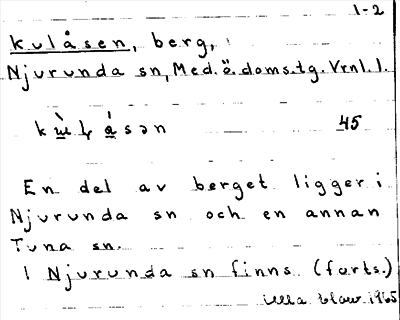 1-2
kulåsen, berg,
Njurunda sn, Med. ö. doms.tg. Vrnl. l.
45
En del av berget ligger i
Njurunda sn och en annan
Tuna sn.
I Njurunda sn finns (forts.)
Ulla 1965